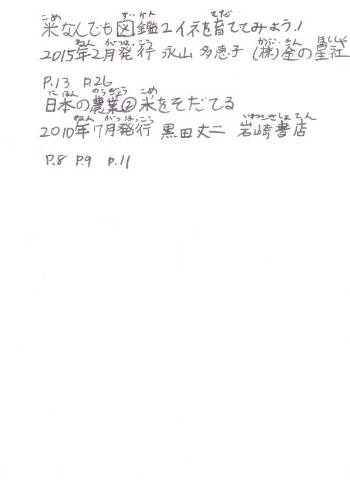 こめ ずかん そだ
米なんでも図鑑2イネを育ててみよう!
ねん がつはっこう かぶ きん ほししゃ
2015年2月発行 永山多恵子 (株)金の星社
P.13 P.26
にほん のうぎょう こめ
日本の農業② 米をそだてる
ねん がつはっこう いわさきしょてん
2010年7月発行 黒田丈二 岩崎書店
P.8 P.9 P.11